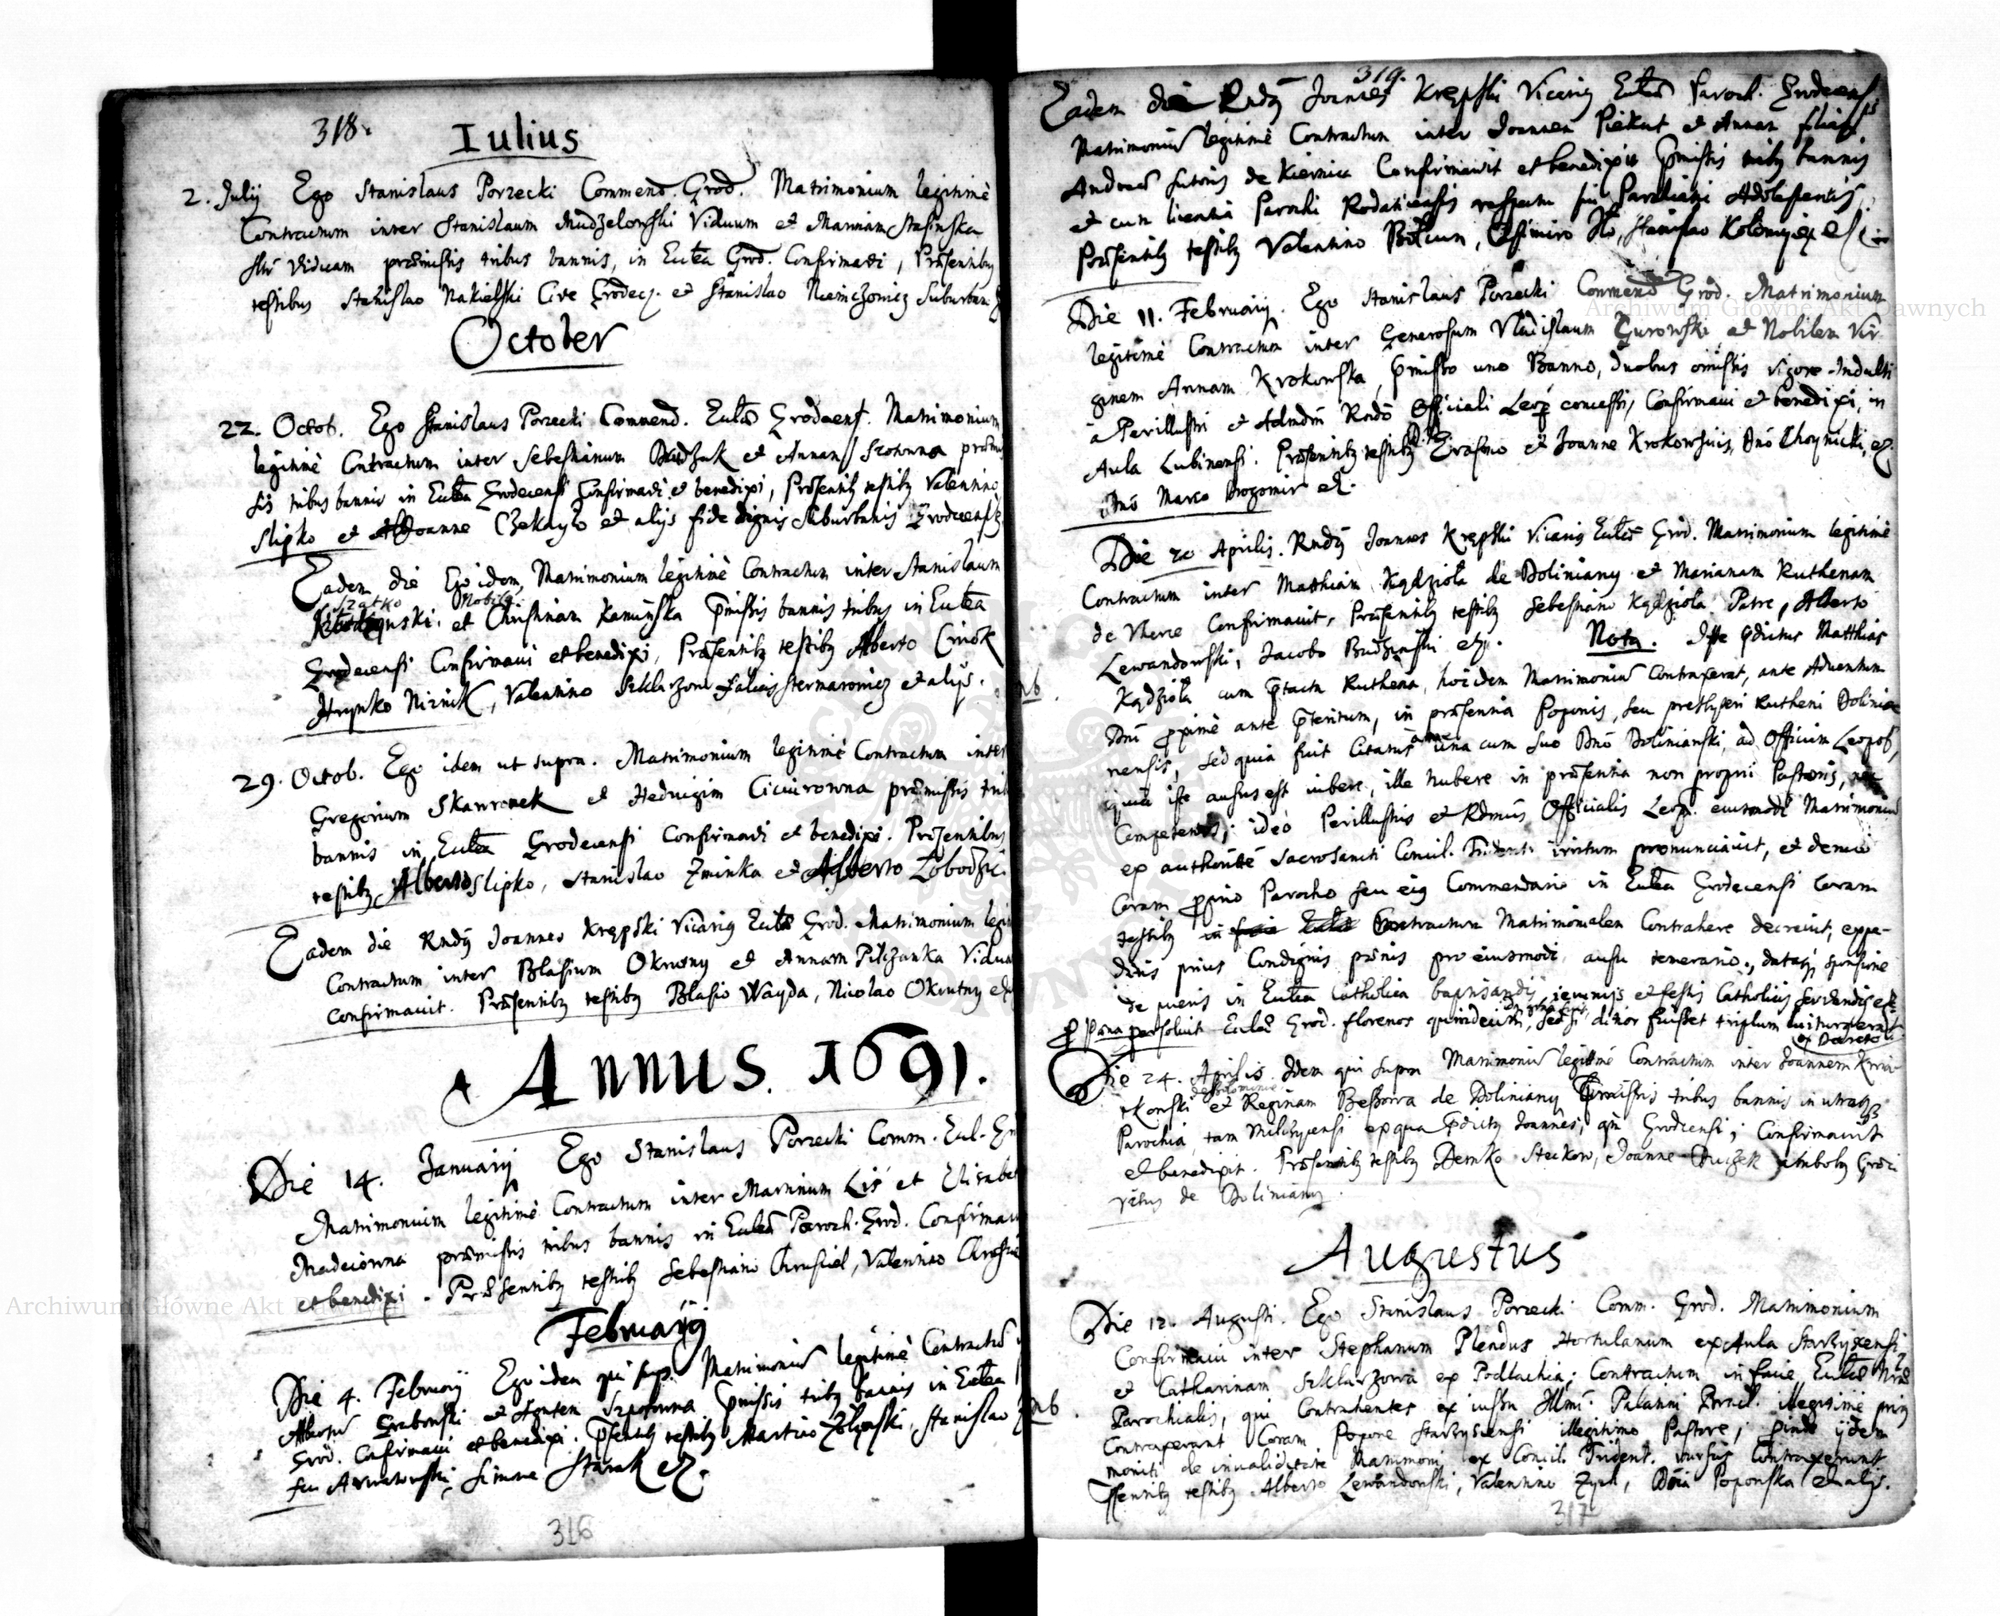 318.
Iulius
2. Julij Ego Stanislaus Porzecki Commend. Grod. Matrimonium legitimè
Contractum inter Stanislaum Mudzelowski Viduum et Mariam Stasinska
Viduam præmissis tribus bannis, in Eccła Grod. Confirmavi, Præsentibꝰ
testibus Stanislao Nakielski Cive Grodec. et Stanislao Niemczowicz Suburban.
October
22. Octob. Ego Stanislaus Porzecki Commend. Eccłæ Grodecens. Matrimonium
legitimè Contractum inter Sebestianum et Annam præmis
sis tribus bannis in Eccła Grodecensi Confirmavi et benedixi, Præsentibꝰ testibꝰ Valentino
Slipko et Joanne Czekayło et alijs fide dignis Suburbanis Grodecensibꝰ
Eadem die Ego idem, Matrimonium legitimè Contractum inter Stanislaum
Szatko Nobilē
et Christinam Kaminska præmissis bannis tribus in Eccła
Grodecensi Confirmavi et benedixi, Præsentibꝰ testibꝰ Alberto Cwiok
Hrynko Niznik, Valentino Szklarzow et alijs.
29. Octob. Ego idem ut supra. Matrimonium legitimè Contractum inter
Gregorium Skawronek et Hedvigim Ciciurowna præmissis trib
bannis in Eccła Grodecensi Confirmavi et benedixi. Præsentibus
testibꝰ Alberto Slipko, Stanislao Zminka et Alberto Łobodzic.
Eadem die Rndꝰ Joannes Krępski Vicariꝰ Eccłæ Grod. Matrimonium legit
Contractum inter Blasium Okrutny et Annam Pilchanka Vidua
confirmavit. Præsentibꝰ testibꝰ Blasio Wayda, Nicolao Okrutny etc
Annus. 1691.
Die 14. Januarij Ego Stanislaus Porzecki Comm. Eccl. Gr
Matrimonium legitimè Contractum inter Martinum Lis et Elisabet
Madeiowna præmissis tribus bannis in Eccła Paroch. Grod. Confirmav
et benedixi. Præsentibꝰ testibꝰ Sebestiano Chrusciel, Valentino
Februarij
Die 4. Februarij Ego idem qui sup. Matrimoniū legitimè Contractū
Albertū Grabowski et Agnetem præmissis tribꝰ bannis in Eccła
Grod. Cōfirmavi et benedixi. Præsentibꝰ testibꝰ Martino Stanislao
seu Simone Starak etc.
316
319.
Eadem die Rndꝰ Joannes Krępski Vicariꝰ Eccłæ Paroch. Grodecens.
Matrimoniū legitimè Contractum inter Joannem Piekut et Annam filiam
Andreæ Sutoris de Kiernica Confirmavit et benedixit præmissis tribꝰ bannis
et cum licentia Parochi Rodaticensis respectu sui Parochiani Adolescentis.
Præsentibꝰ testibꝰ Valentino Stanislao
Die 11. Februarij. Ego Stanislaus Porzecki Commend Grod. Matrimonium
legitimè Contractum inter Generosum Vladislaum Gurowski et Nobilem Vir
ginem Annam Krokowska, præmisso uno Banno, duobus omissis vigore Indulti
à Perillustri et Admdm Rndo Officiali Leop. concessi, Confirmavi et benedixi, in
Aula Lubinensi. Præsentibꝰ testibꝰ Erasmo et Joanne Krokowskis, Dno Choynicki, et
Dno Marco Drogomir etc.
Die 20 Aprilis. Rndꝰ Joannes Krępski Vicariꝰ Eccłæ Grod. Matrimonium legitimè
Contractum inter Matthiam Kądzioła de Doliniany et Marianam Ruthenam
de Vherce Confirmavit, Præsentibꝰ testibꝰ Sebestiano Kądzioła Patre, Alberto
Lewandowski, Jacobo Budzinski etc. Nota. Iste prædictus Matthias
nb.
Kądzioła cum præfacta Ruthena, hoc idem Matrimoniū Contraxerat, ante Adventum
Dni proximè ante præteritum, in præsentia Poponis, seu presbyteri Rutheni Dolinia
nensis, sed quia fuit Citatus una cum suo Dno Dolinianski, ad Officium Leopol.
quia iste ausus est iubere, ille nubere in præsentia non proprij Pastoris, nec
Competentis; ideo Perillustris et Rdmus Officialis Leop. eiusmodi Matrimoniū
ex authoritate Sacrosancti Concil. Trident. irritum pronunciavit, et denuo
Coram proprio Parocho seu eiꝰ Commendario in Eccła Grodecensi Coram
testibꝰ Contractum Matrimonialem Contrahere decrevit, expe-
ditis prius Condignis pænis pro eiusmodi ausu temerario,
de pueris in Eccła Catholica baptisandis, ieiunijs et festis Catholicis servandis etc
pro pæna persolvit Eccłæ Grod. florenos quindecim, sed si ditior fuisset triplum
ex Decreto
Die 24. Aprilis. Idem qui supra Matrimoniū legitimè Contractum inter Joannem
kowski et Reginam de Doliniany præmissis tribus bannis in utraqꝫ
Parochia, tam Milczycensi ex qua prædictꝰ Joannes, quam Grodecensi; Confirmavit
et benedixit. Præsentibꝰ testibꝰ Demko Steckow, Joanne ambobꝰ Græci
ritus de Doliniany.
Augustus
Die 12. Augusti. Ego Stanislaus Porzecki Comm. Grod. Matrimonium
Confirmavi inter Stephanum Plendus Hortulanum ex Aula Starzyscensi,
et Catharinam Szklarzowa ex Podlachia; Contractum in facie Eccłæ Nræ
nb.
Parochialis, qui Contrahentes ex iussu Illmi Palatini illegitimè priꝰ
Contraxerant Coram Popone Starzyscensi illegitimo Pastore; proinde ijdem
moniti de invaliditate Matrimonij ex Concil. Trident. rursus Contraxerunt
Præsentibꝰ testibꝰ Alberto Lewandowski, Valentino Zyła, Poponska et alijs.
317
Archiwum Główne Akt Dawnych
Archiwum Główne Akt Dawnych